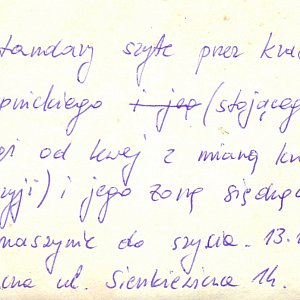 tandary szyte przez kra
pnickiego i jej (stojącego
gi od lewej z miarą kr
zyji) i jego żonę siedzą
maszynie do szycia. 13.
zna ul. Sienkiewicza 14.